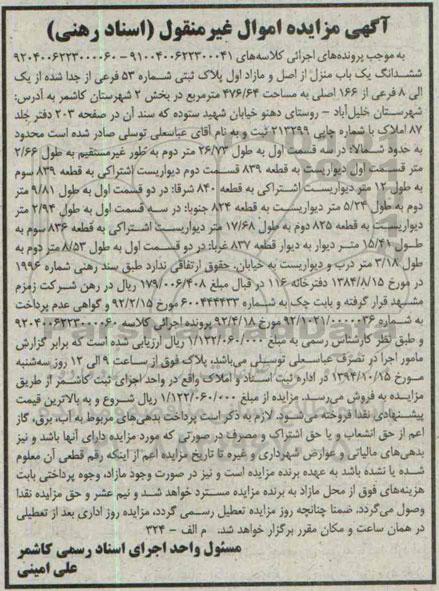 آگهی مزایده اموال غیرمنقول (اسناد رهنی)
به موجب پرونده‌های اجرائی کلاسه‌های ۹۱۰۰۴۰۰۶۲۲۳۰۰۰۴۱ – ۹۲۰۴۰۰۶۲۲۳۰۰۰۰۶۰
ششدانگ یک باب منزل از اصل و مازاد اول پلاک ثبتی شماره ۵۳ فرعی از جدا شده از یک
الی ۸ فرعی از ۱۶۶ اصلی به مساحت ۴۷۶/۶۴ مترمربع در بخش ۲ شهرستان کاشمر به آدرس:
شهرستان خلیل‌آباد – روستای دهنو خیابان شهید ستوده که سند آن در صفحه ۲۰۳ دفتر جلد
۸۷ املاک با شماره چاپی ۲۱۳۲۹۹ ثبت و به نام آقای عباسعلی توسلی صادر شده است محدود
به حدود شمالا: در سه قسمت اول به طول ۲۶/۷۳ متر دوم به طور غیرمستقیم به طول ۲/۶۶
متر قسمت اول دیواریست به قطعه ۸۳۹ قسمت دوم دیواریست اشتراکی به قطعه ۸۳۹ سوم
به طول ۱۲ متر دیواریست اشتراکی به قطعه ۸۴۰ شرقا: در دو قسمت اول به طول ۹/۸۱ متر
دوم به طول ۵/۲۴ متر دیواریست به قطعه ۸۲۴ جنوبا: در سه قسمت اول به طول ۲/۹۴ متر
دیواریست به قطعه ۸۲۵ دوم به طول ۱۷/۶۸ متر دیواریست اشتراکی به قطعه ۸۳۶ سوم به
طول ۱۵/۴۱ متر دیوار به دیوار قطعه ۸۳۷ غربا: در دو قسمت اول به طول ۸/۵۳ متر دوم به
طول ۳/۱۸ متر درب و دیواریست به خیابان. حقوق ارتفاقی ندارد طبق سند رهنی شماره ۱۹۹۶
در مورخ ۱۳۸۴/۸/۱۵ دفترخانه ۱۱۶ در قبال مبلغ ۱۷۹/۰۰۶/۴۰۸ ریال در رهن شرکت زمزم
مشهد قرار گرفته و بابت چک به شماره ۶۰۰۴۴۴۴۳۳ مورخ ۹۲/۲/۱۵ و گواهی عدم پرداخت
به شماره ۹۲/۱۰۲۱/۰۰۰۰۰۳۶ مورخ ۹۲/۴/۱۸ پرونده اجرائی کلاسه ۹۲۰۴۰۰۶۲۲۳۰۰۰۰۶۰
و طبق نظر کارشناس رسمی به مبلغ ۱/۱۲۲/۰۶۰/۰۰۰ ریال ارزیابی شده است که برابر گزارش
مامور اجرا در تصرف عباسعلی توسیلی می‌باشد، پلاک فوق از ساعت ۹ الی ۱۲ روز سه‌شنبه
مورخ ۱۳۹۴/۱۰/۱۵ در اداره ثبت اسناد و املاک واقع در واحد اجرای ثبت کاشمر از طریق
مزایده به فروش می‌رسد. مزایده از مبلغ ۱/۱۲۲/۰۶۰/۰۰۰ ریال شروع و به بالاترین قیمت
پیشنهادی نقدا فروخته می‌شود. لازم به ذکر است پرداخت بدهی‌های مربوط به آب، برق، گاز
اعم از حق انشعاب و یا حق اشتراک و مصرف در صورتی که مورد مزایده دارای آنها باشد و نیز
بدهی‌های مالیاتی و عوارض شهرداری و غیره تا تاریخ مزایده اعم از اینکه رقم قطعی آن معلوم
شده یا نشده باشد به عهده برنده مزایده است و نیز در صورت وجود مازاد، وجوه پرداختی بابت
هزینه‌های فوق از محل مازاد به برنده مزایده مسترد خواهد شد و نیم عشر و حق مزایده نقدا
وصول می‌گردد، ضمنا چنانچه روز مزایده تعطیل رسمی گردد، مزایده روز اداری بعد از تعطیلی
در همان ساعت و مکان مقرر برگزار خواهد شد. م الف – ۳۲۴
مسئول واحد اجرای اسناد رسمی کاشمر
علی امینی